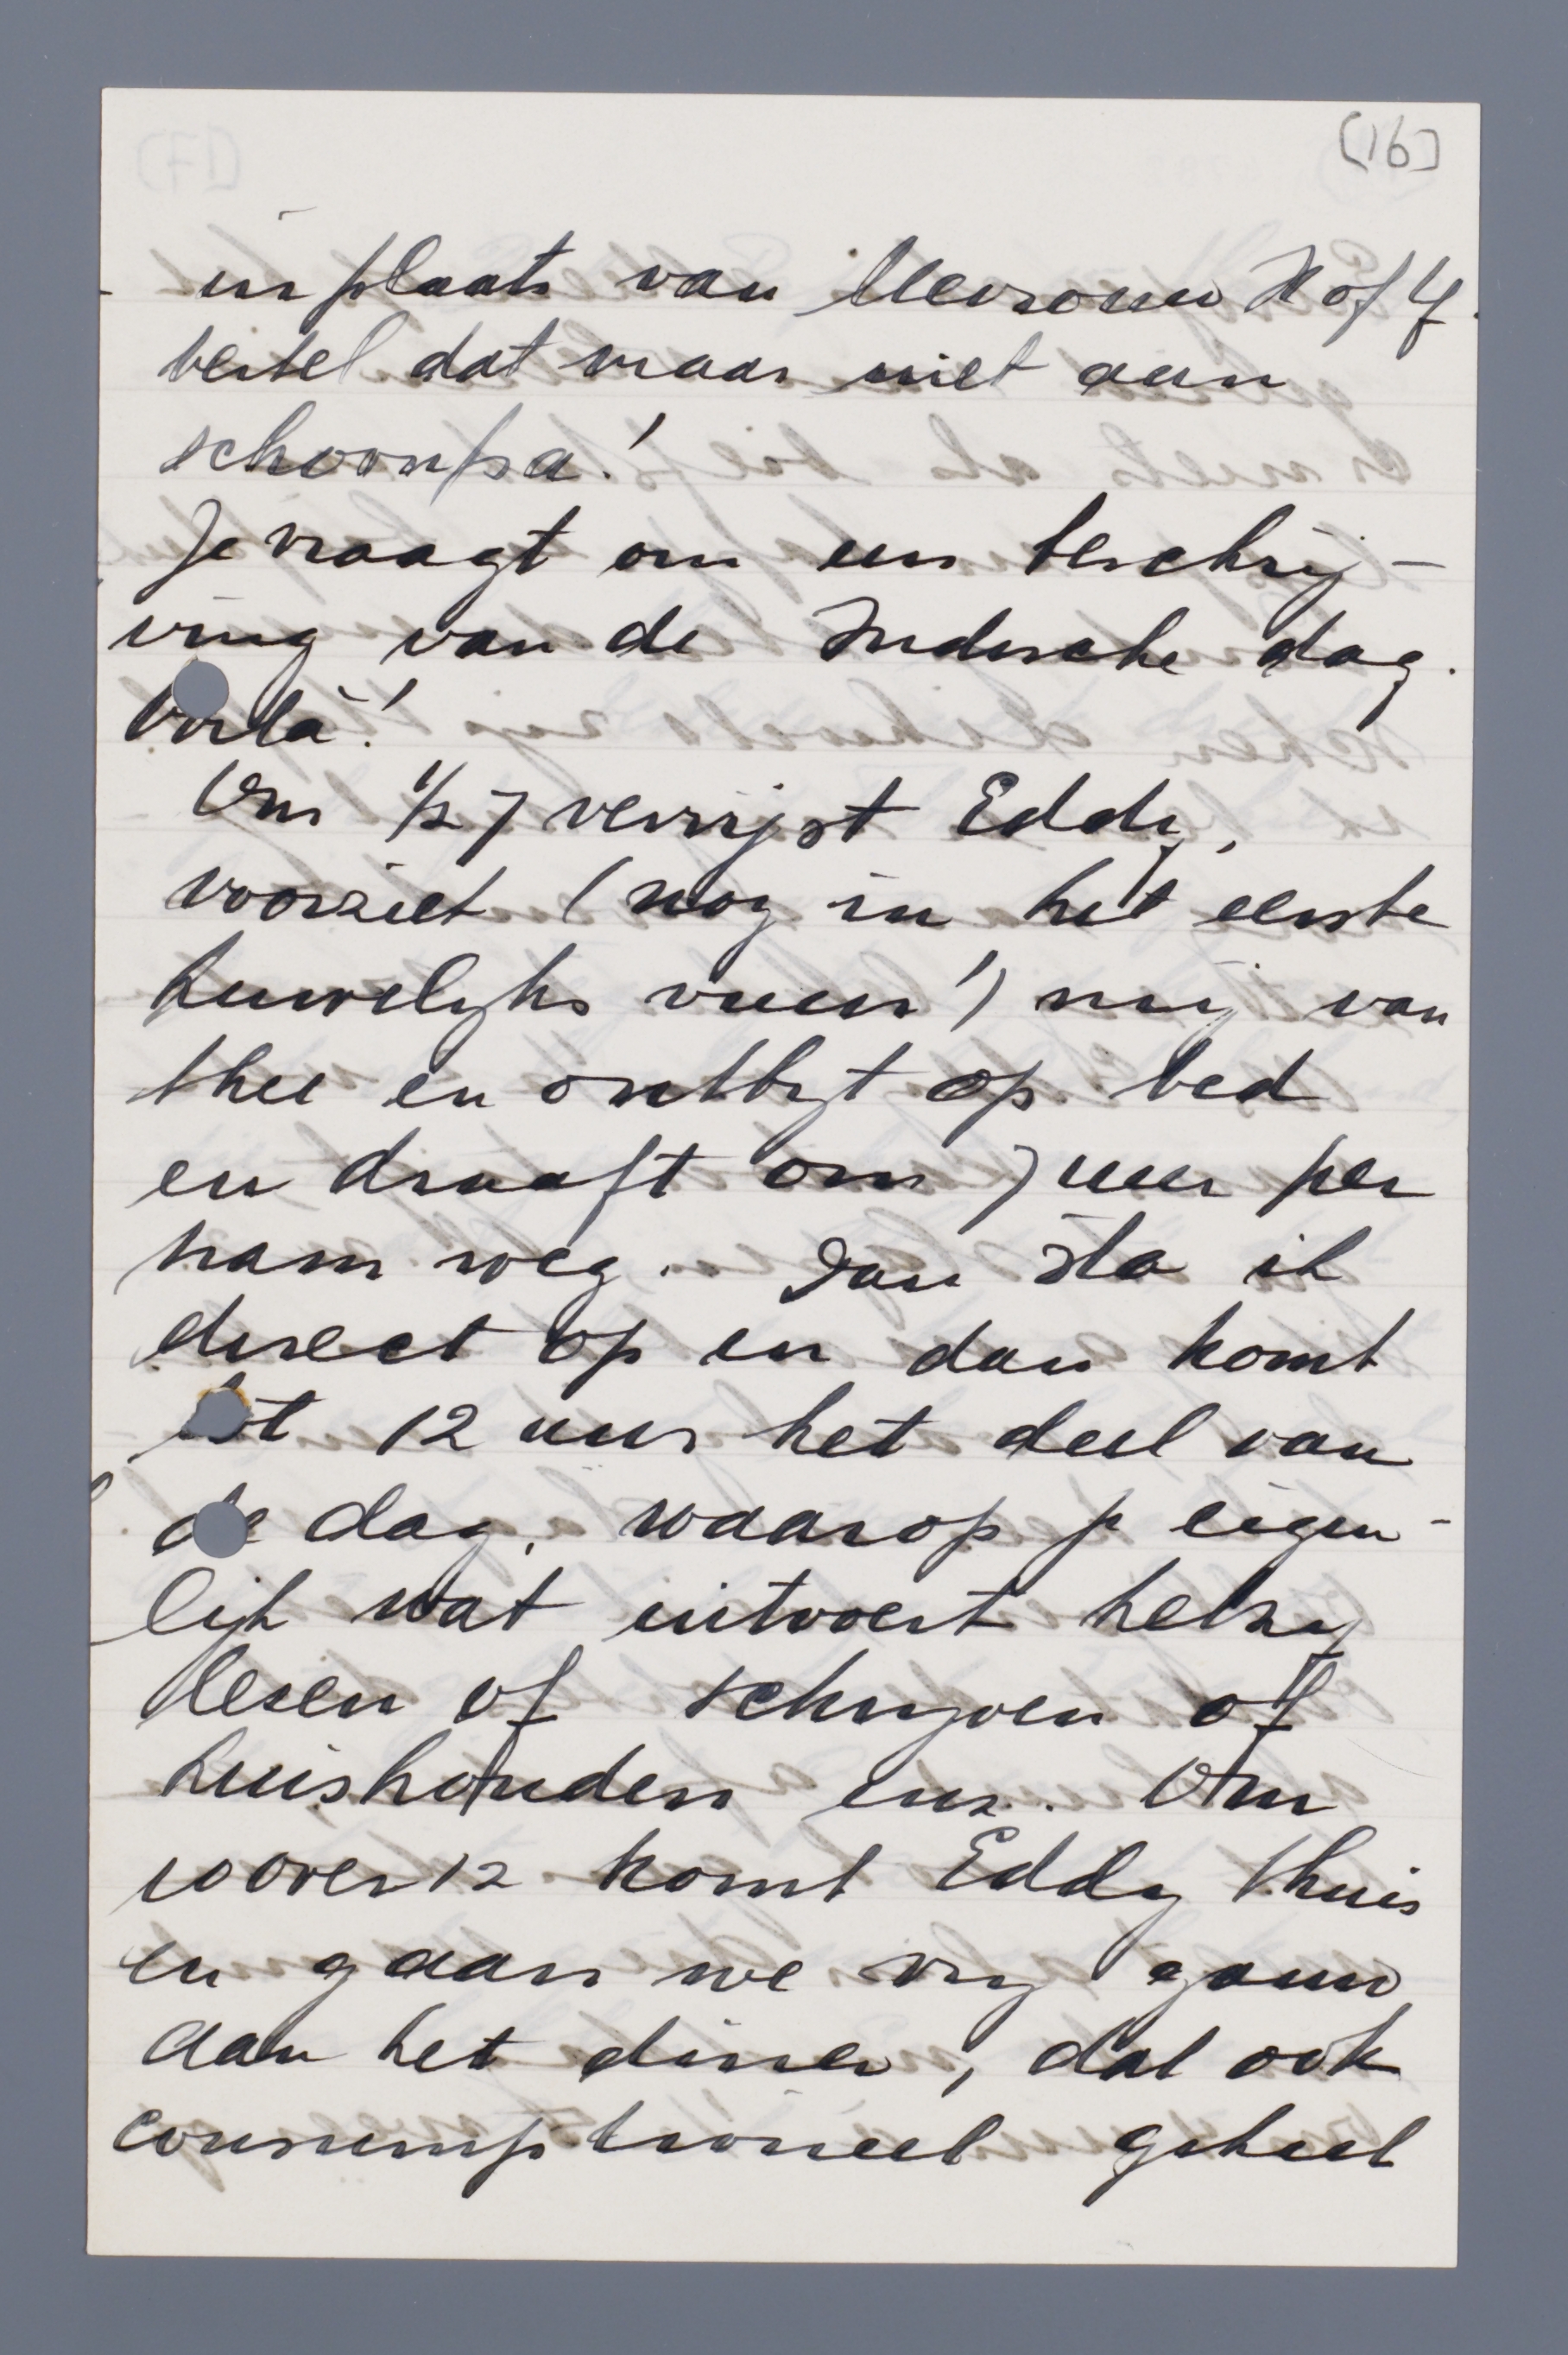 [16]
in plaats van Mevrouw X of Y.
vertel dat maar niet aan
schoonpa!
Je vraagt om een beschrij-
ving van de Indische dag.
Voilà!
Om 1/2 7 verrijst Eddy,
voorziet (nog in het eerste
huwelijks vuur!) mij van
thee en ontbijt op bed
en draaft om 7 uur per
tram weg. Dan sta ik
direct op en dan komt
tot 12 uur het deel van
de dag, waarop je eigen-
lijk wat uitvoert hetzij
lezen of schrijven of
huishouden enz. Om
10 over 12 komt Eddy thuis
en gaan we vrij gauw
aan het diner, dat ook
consumptioneel geheel